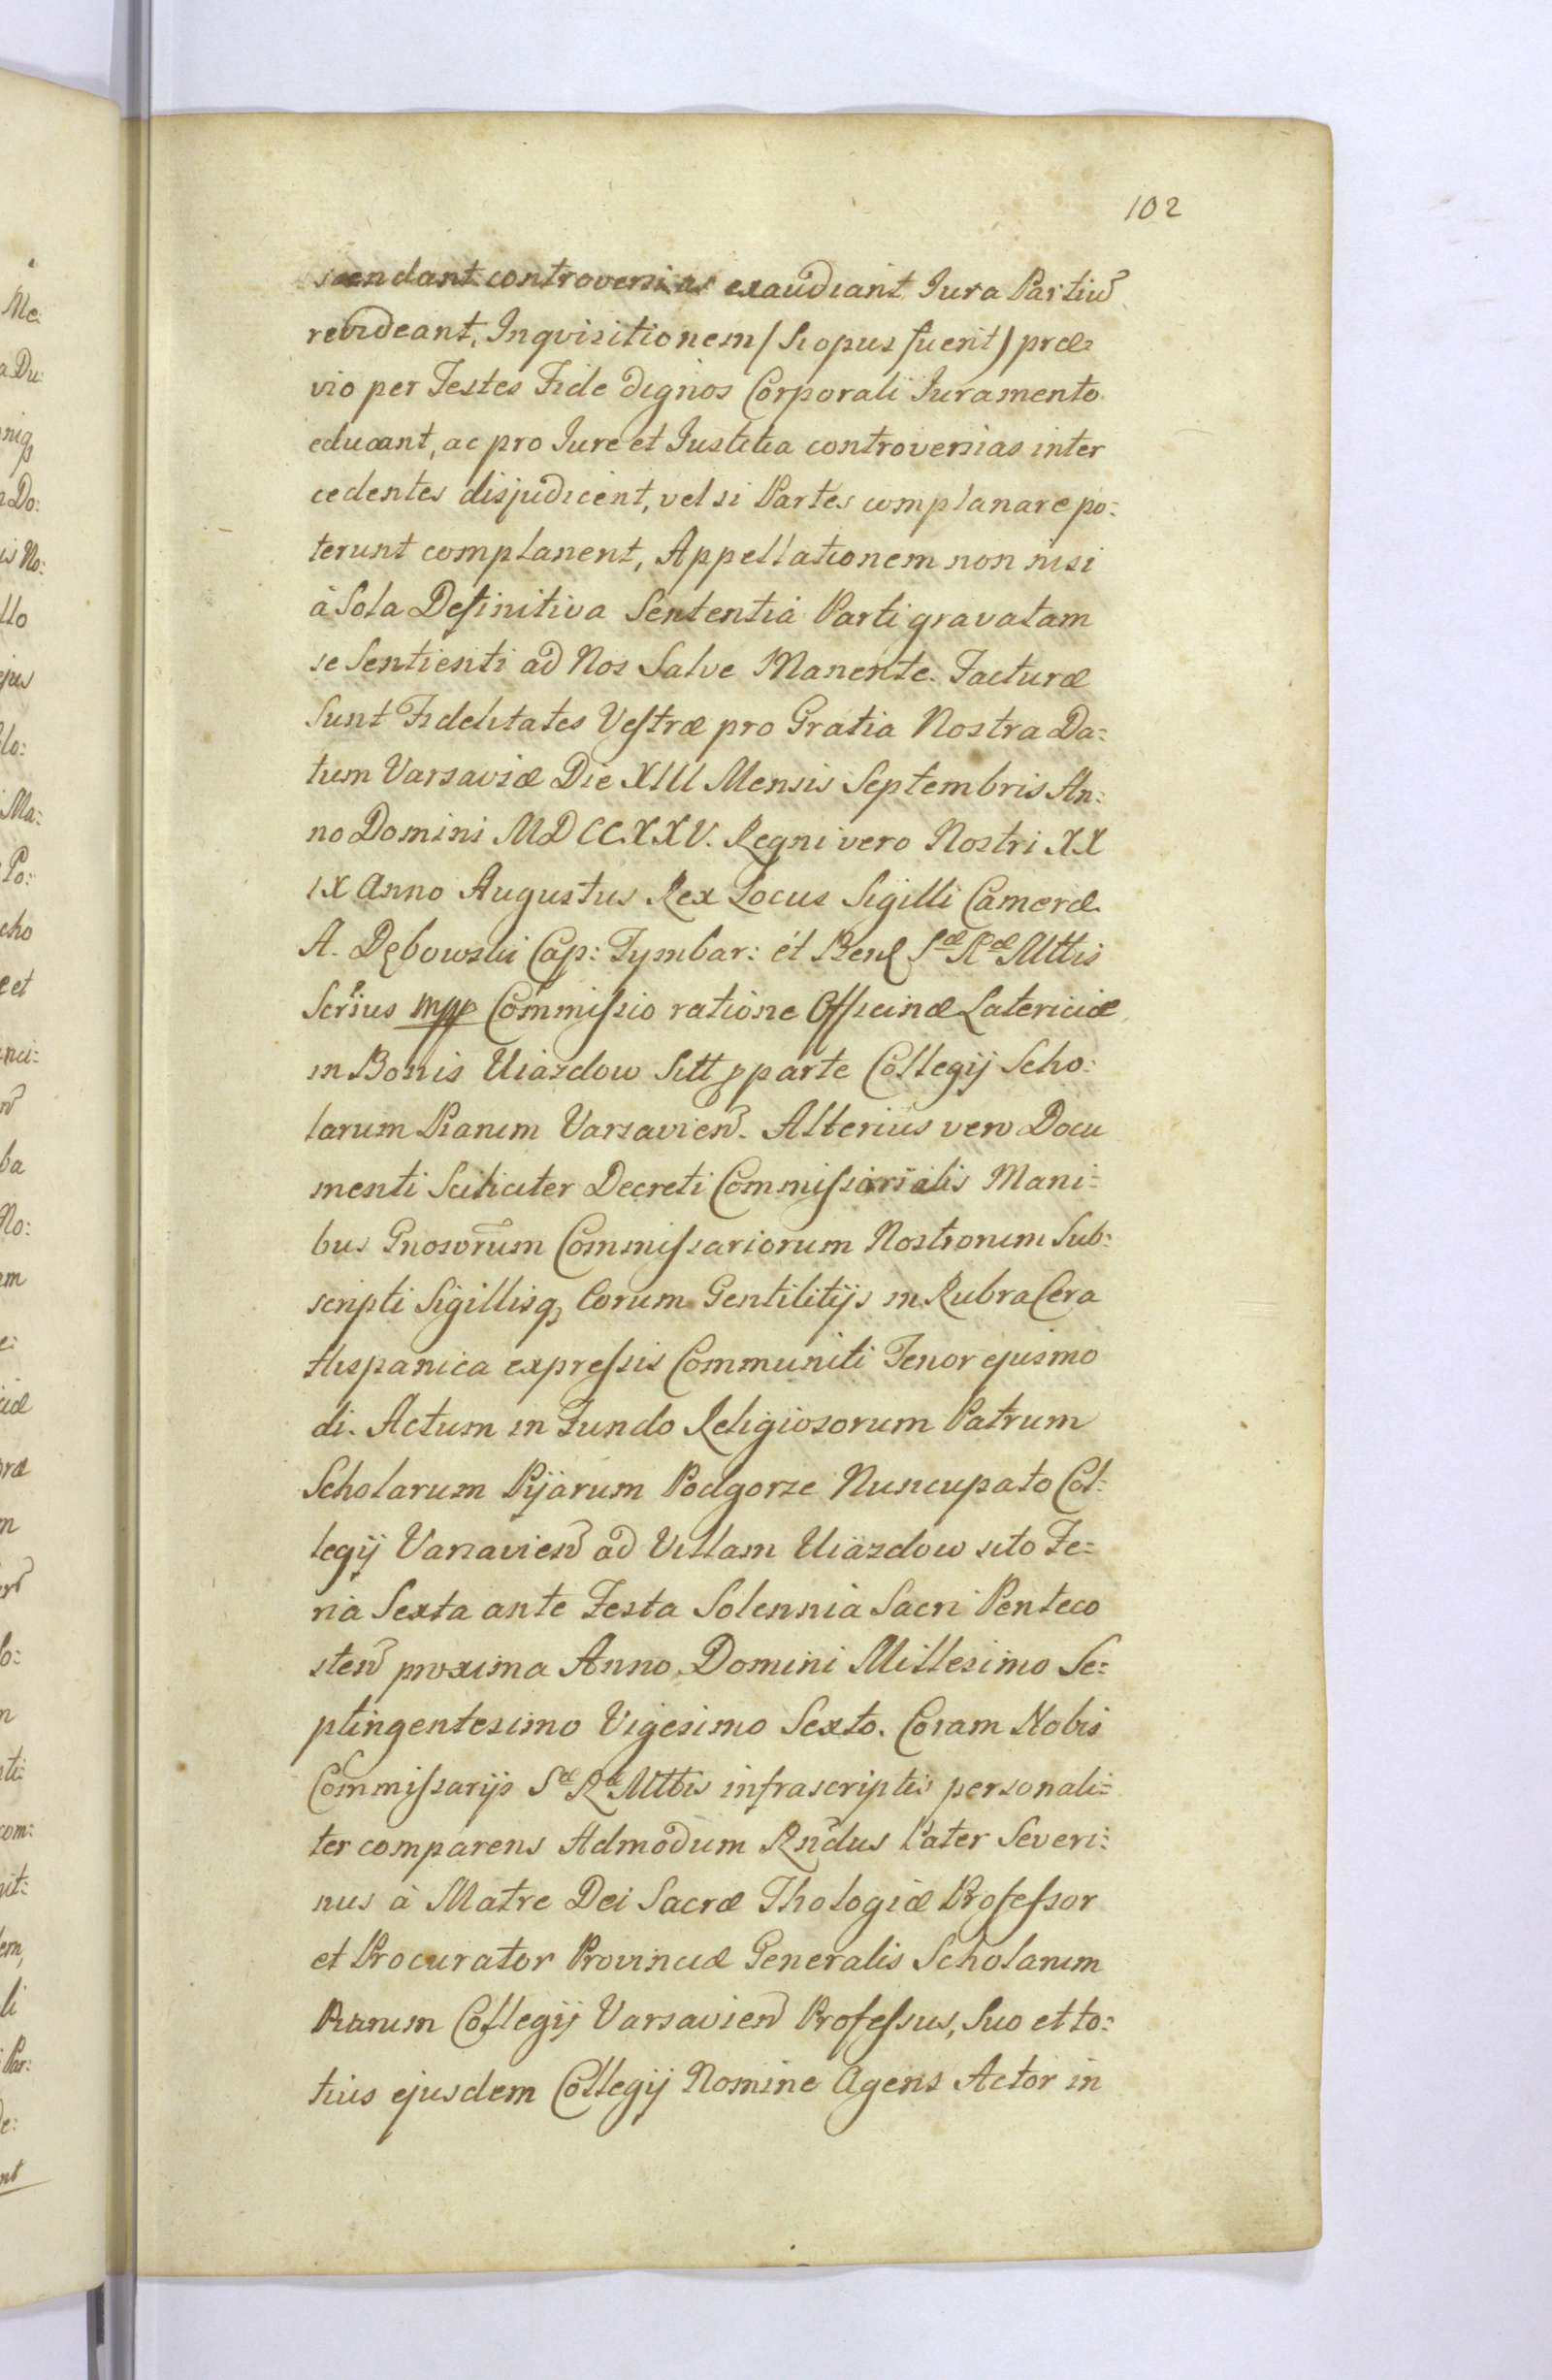 102
scendant controversias exaudiant Jura Partiũ
revideant, Inqvisitionem /Si opus fuerit/ præ=
vio per Testes Fide dignos Corporali Juramento
educant, ac pro Jure et Justitia controversias inter
cedentes disjudicent, vel si Partes complanare po=
terunt complanent, Appellationem non nisi
à Sola Definitiva Sententia Parti gravatam
se Sentienti ad Nos Salve Manente. Facturæ
Sunt Fidelitates Vestræ pro Gratia Nostra Da=
tum Varsaviæ Die XIII Mensis Septembris An=
no Domini MDCCXXV. Regni vero Nostri XX
IX Anno Augustus Rex Locus Sigilli Cameræ
A. Dębowski Cap: Tymbar: et S^æ R^æ Mttis
Scrius mpp Commissio ratione Officinæ Latericiæ
in Bonis Uiazdow Sitt pparte Collegij Scho=
larum Piarum Varsavien̄. Alterius vero Docu
menti Scilicter Decreti Commissarialis Mani=
bus Gnosorum Commissariorum Nostrorum Sub=
scripti Sigillisq, Eorum Gentilitijs in Rubra Cera
Hispanica expressis Communiti Tenor ejusmo
di. Actum in Fundo Religiosorum Patrum
Scholarum Pijarum Podgorze Nuncupato Col=
legij Varsavien̄ ad Villam Uiazdow sito Fe=
ria Sexta ante Festa Solennia Sacri Penteco
sten̄ proxima Anno Domini Millesimo Se=
ptingentesimo Vigesimo Sexto. Coram Nobis
Commissarijs S^æ R^æ Mttis infrascriptis personali=
ter comparens Admodum Rndus Pater Severi=
nus à Matre Dei Sacræ Thologiæ Professor
et Procurator Provinciæ Generalis Scholarum
Piarum Collegij Varsavien̄ Professus, Suo et to=
tius ejusdem Collegij Nomine Agens Actor in